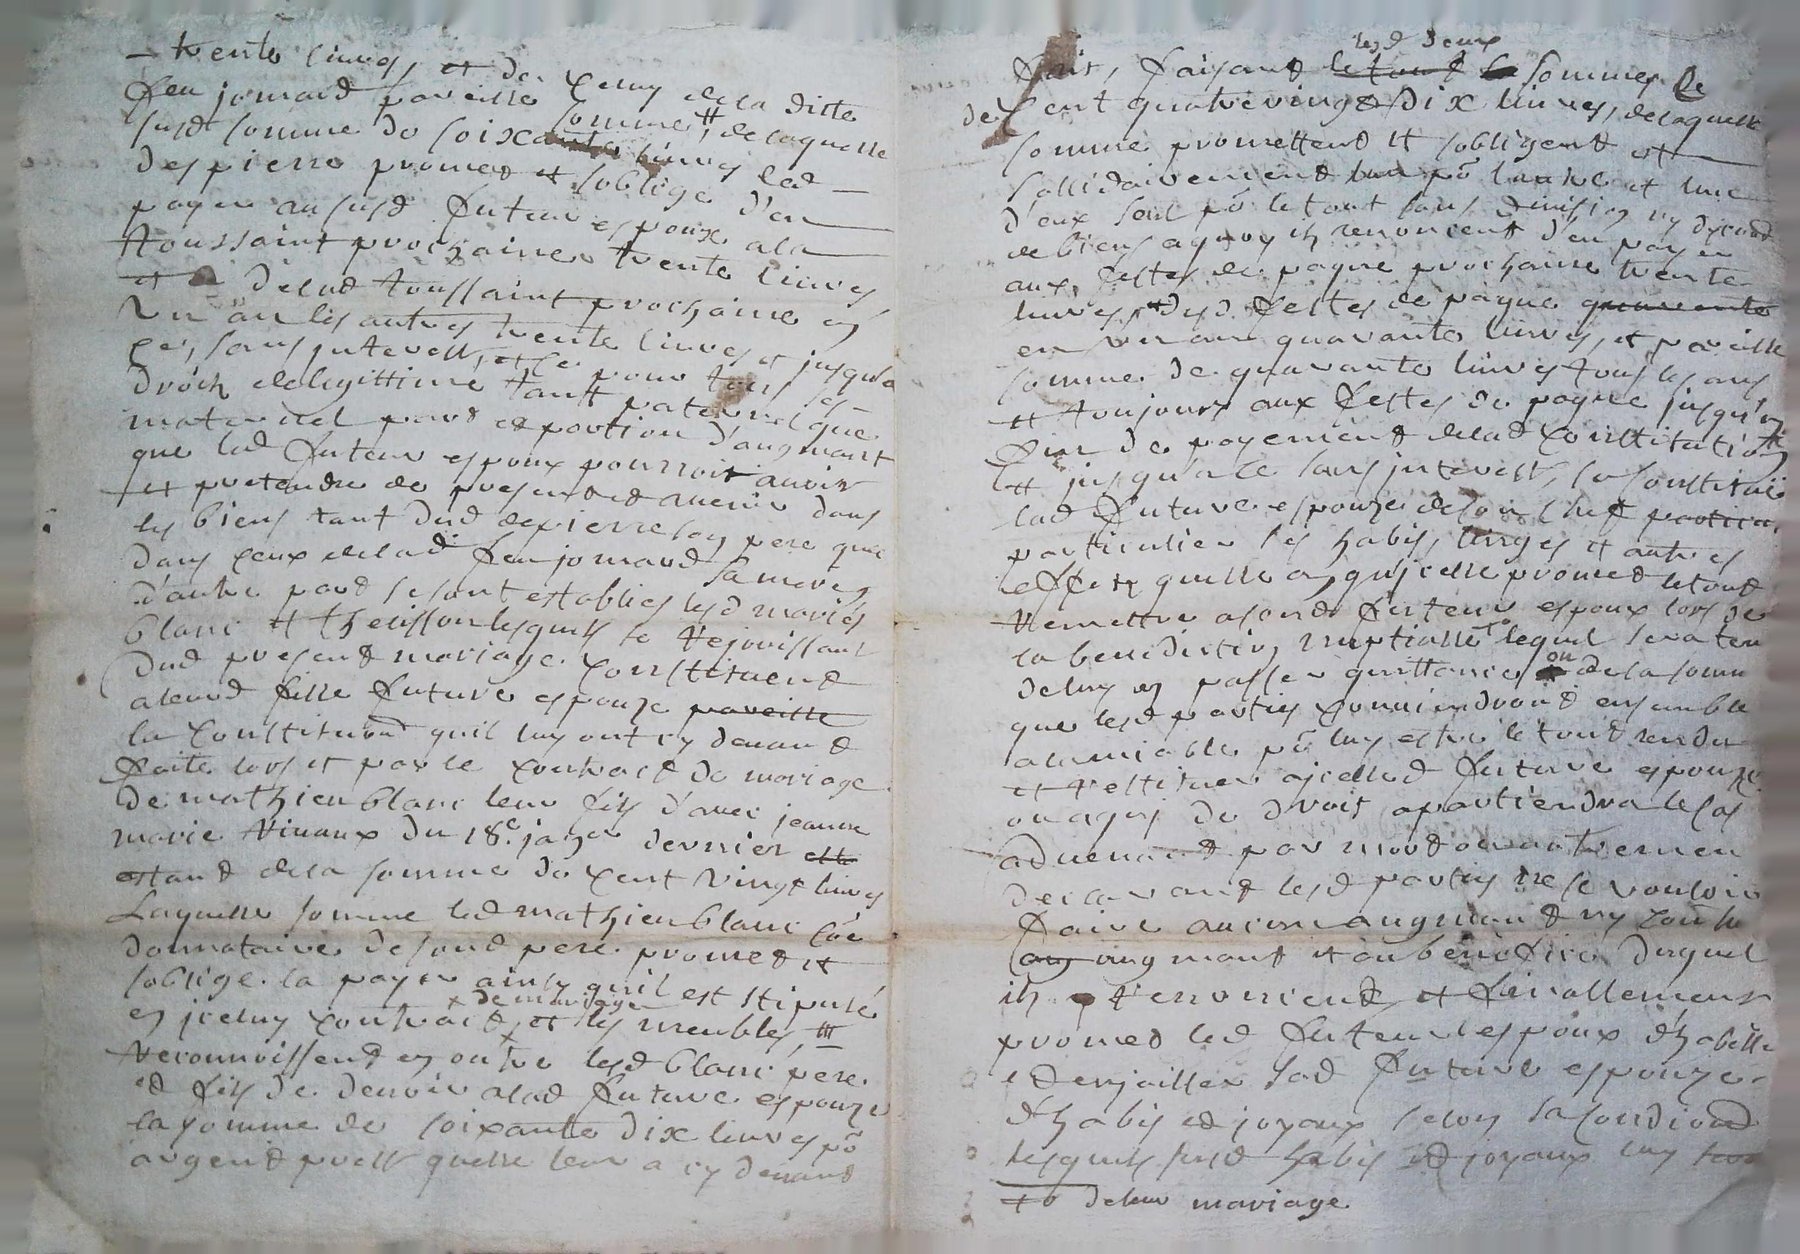 trente livres, et de celuy de la ditte
feu jomard pareille somme, de laquelle
susd somme de soixante livres led
despierre promet et soblige d'en
payer au susd futeur espoux a la
toussaint prochaine trente livres
et de lad toussaint prochaine en
un an les autres trente livres et jusqua
ce, sans interest, et ce pour tous
droits de legittime tant paternel que
maternel part et portion d'augmant
que led futeur espoux pourroit avoir
et pretendre de present et avenir dans
les biens tant dud despierre son pere que
dans ceux de lad feu jomard sa mere
d'autre part se sont establies lesd mariés
blanc et theisson lesquels se rejouissant
dud present mariage constituent
a leurd fille future espouze pareille
la constitution quil luy ont cy devant
faite lors et par le contract de mariage
de mathieu blanc leur fils d'avec jeanne
marie vivaux du 18e janer dernier
estant de la somme de cent vingt livres
Laquelle somme led mathieu blanc coe
donnataire de sond pere promet et
soblige la payer ainsy quil est stipulé
en iceluy contract de mariage, et les meubles,
Reconnoissent en outre lesd blanc pere
et fils de devoir a lad future espouze
la somme de soixante dix livres po
argent prest quelle leur a cy devant
fait, faisant le tout lesd deux sommes
de cent quatrevingt dix livres, de laquelle
somme promettent et sobligent et
sollidairement lun po lautre et lun
d'eux seul po le tout sans division ny discution
de biens a quoy ils renoncent d'en payer
aux festes de paque prochaine trente
livres, et desd festes de paque quarente
en un an quarante livres, et pareille
somme de quarante livres tous les ans
et toujours aux festes de paque jusqu'en
fin de payement de lad constitution
et jusqua ce sans interest, se constitue
lad future espouze de son chef particu
particulier ses habis, linges et autres
effets quelle a quicelle promet le tout
remettre a sond futeur espoux lors de
la benediction nuptialle lequel sera tenu
de luy en passer quittance ou de la somme
que lesd parties conviendront ensemble
alamiable po luy estre le tout rendu
et restituer a icelled future espouze
ou a qui de droit apartiendra le cas
advenant par mort ou autrement
declarant lesd parties ne se vouloir
faire aucun augmant ny contre
aug augmant et au benefice duquel
ils renoncent et finallement
promet led futeur espoux d'habiller
et enjailler lad future espouze
d'habis et joyaux selon sa condiond
lesquels susd habis et joyaux luy
de leur mariage